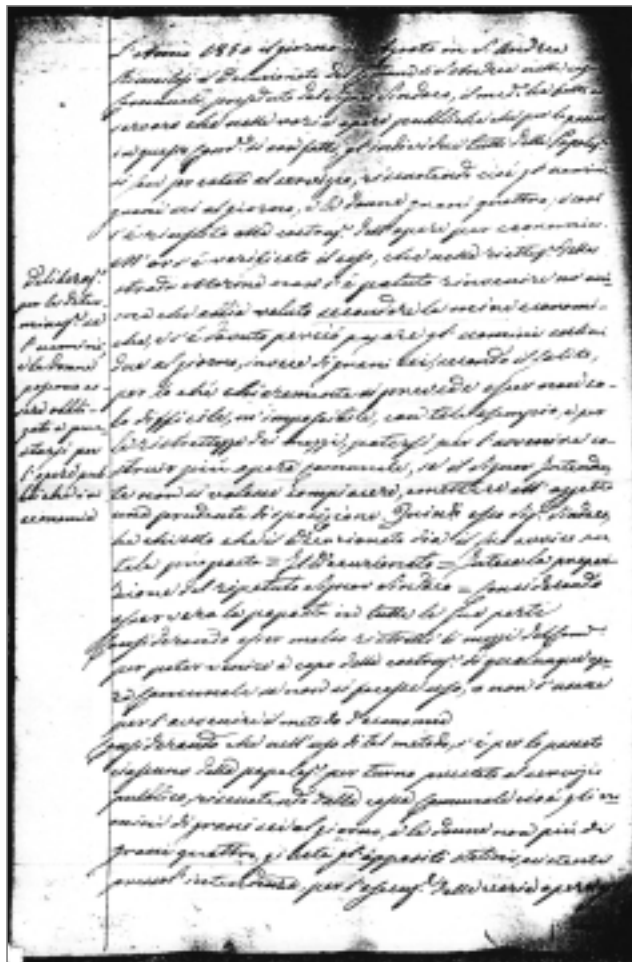 L'Anno 1850 il giorno in S. Andrea
riunitosi il Decurionato del Comune di S. Andrea nella
Comunale, preseduto dal Signor Sindaco, il med.º ha fatto os
servare che nelle varie opere pubbliche che per lo passa
to in questo Com.e si son fatte, gl'individui tutti della Popolaz.e
si son prestati al servizio, riscuotendo cioè gl'uomini
grani sei al giorno, e le donne grani quattro, e così
s'è riuscito alla costruz.e dell'opere per economia.
All'ora s'è verificato il caso, che nella riattaz.e della
strada Marina non s'è potuto rinvenire
che abbia voluto secondare le mire economi
che, e s'è dovuto perciò pagare gl'uomini
due al giorno, invece di grani sei, secondo il solito,
per lo chè chiaramente si prevede esser non so
lo difficile, m'impossibile, con tale esempio, e per
le ristrettezze dei mezzi, potersi per l'avvenire co
struir più opere Comunale, se il Signor Intenden
te non si volesse compiacere, emettere all'oggetto
una prudente disposizione. Quindi esso Sig.r Sindaco,
ha chiesto che il Decurionato dia il suo avviso su
tale proposto = Il Decurionato = Intesa la propo
sizione del ripetuto Signor Sindaco = Considerando
esser vero l'esposto in tutte le sue parti
Considerando esser molto ristretti li mezzi del Com.e
per poter venire a capo della costruz.e di qualunque ope
ra Comunale se non si facesse uso, o non s'usasse
per l'avvenire il metodo d'economia
Considerando che nell'uso di tal metodo, s'è per lo passato
ciascuno della popolaz.e per turno prestato al servizio
pubblico, riscuotendo dalla cassa Comunale cioè gli uo
mini di grani sei al giorno, e le donne non più di
grani quattro, gl'appositi esistenti
presso l'intendenza, per l'esecuz.e delle varie opere
Deliberaz.e
per la deter
minaz.e se
l'uomini,
e le donne
possono es
sere obbli
gate a pre
starsi per
l'opere pub
bliche in
economia